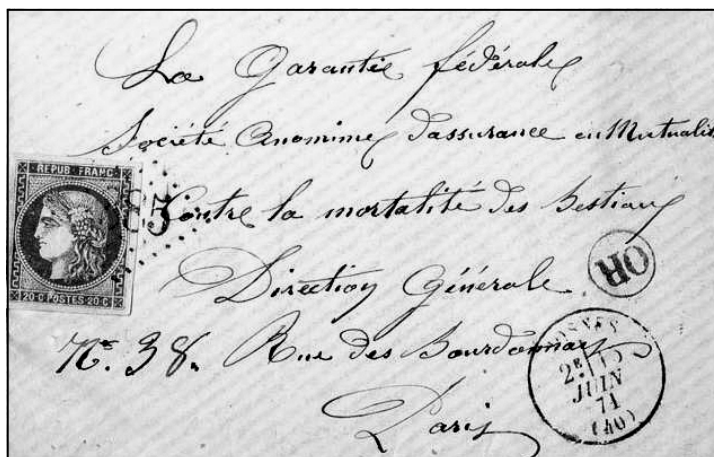 La Garantie fédérale
Société Anonime d'assurance en Mutualité
Contre la mortalité des Bestiaux
Direction Générale
N° 38. Rue des Bourdonnais
Paris
REPUB. FRANC.
20·C POSTES 20·C
OR
2E
JUIN
71
(40)